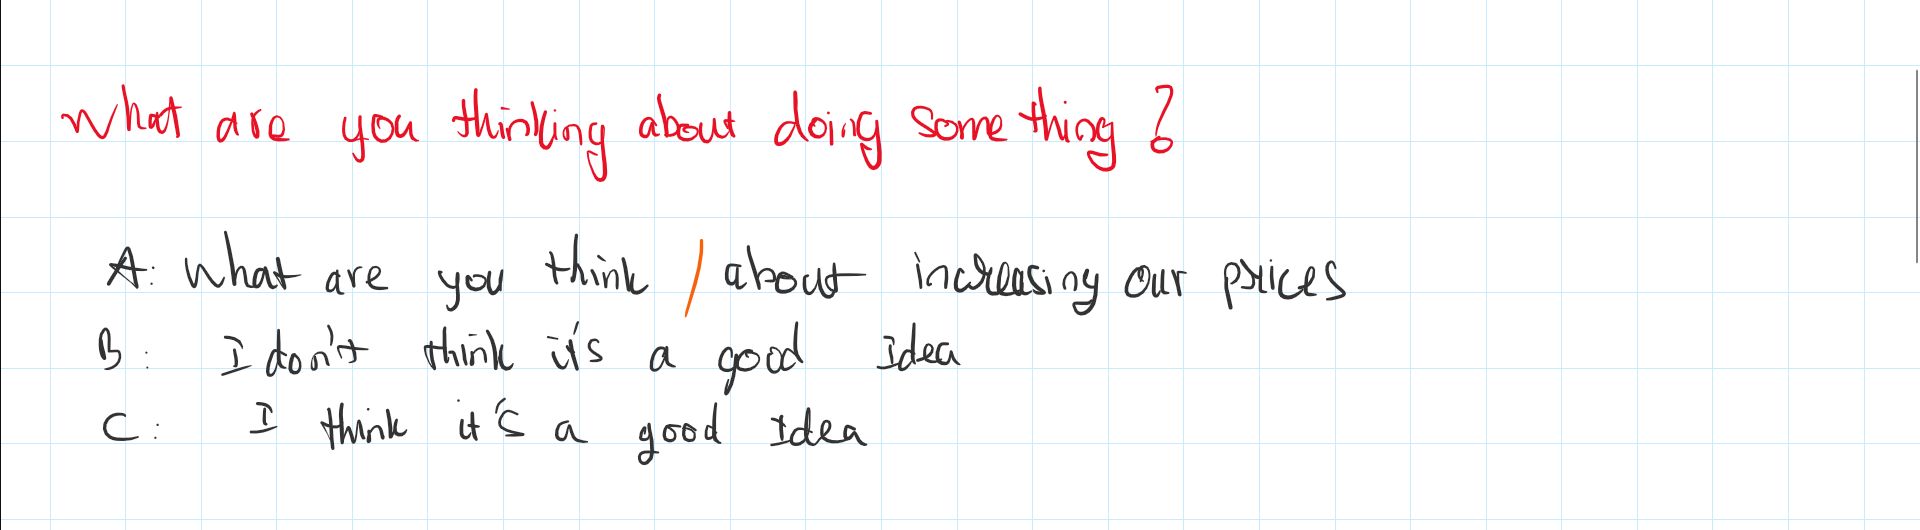 What are you thinking about doing something?
A: What are you think / about increasing our prices
B: I don't think it's a good Idea
C: I think it's a good Idea